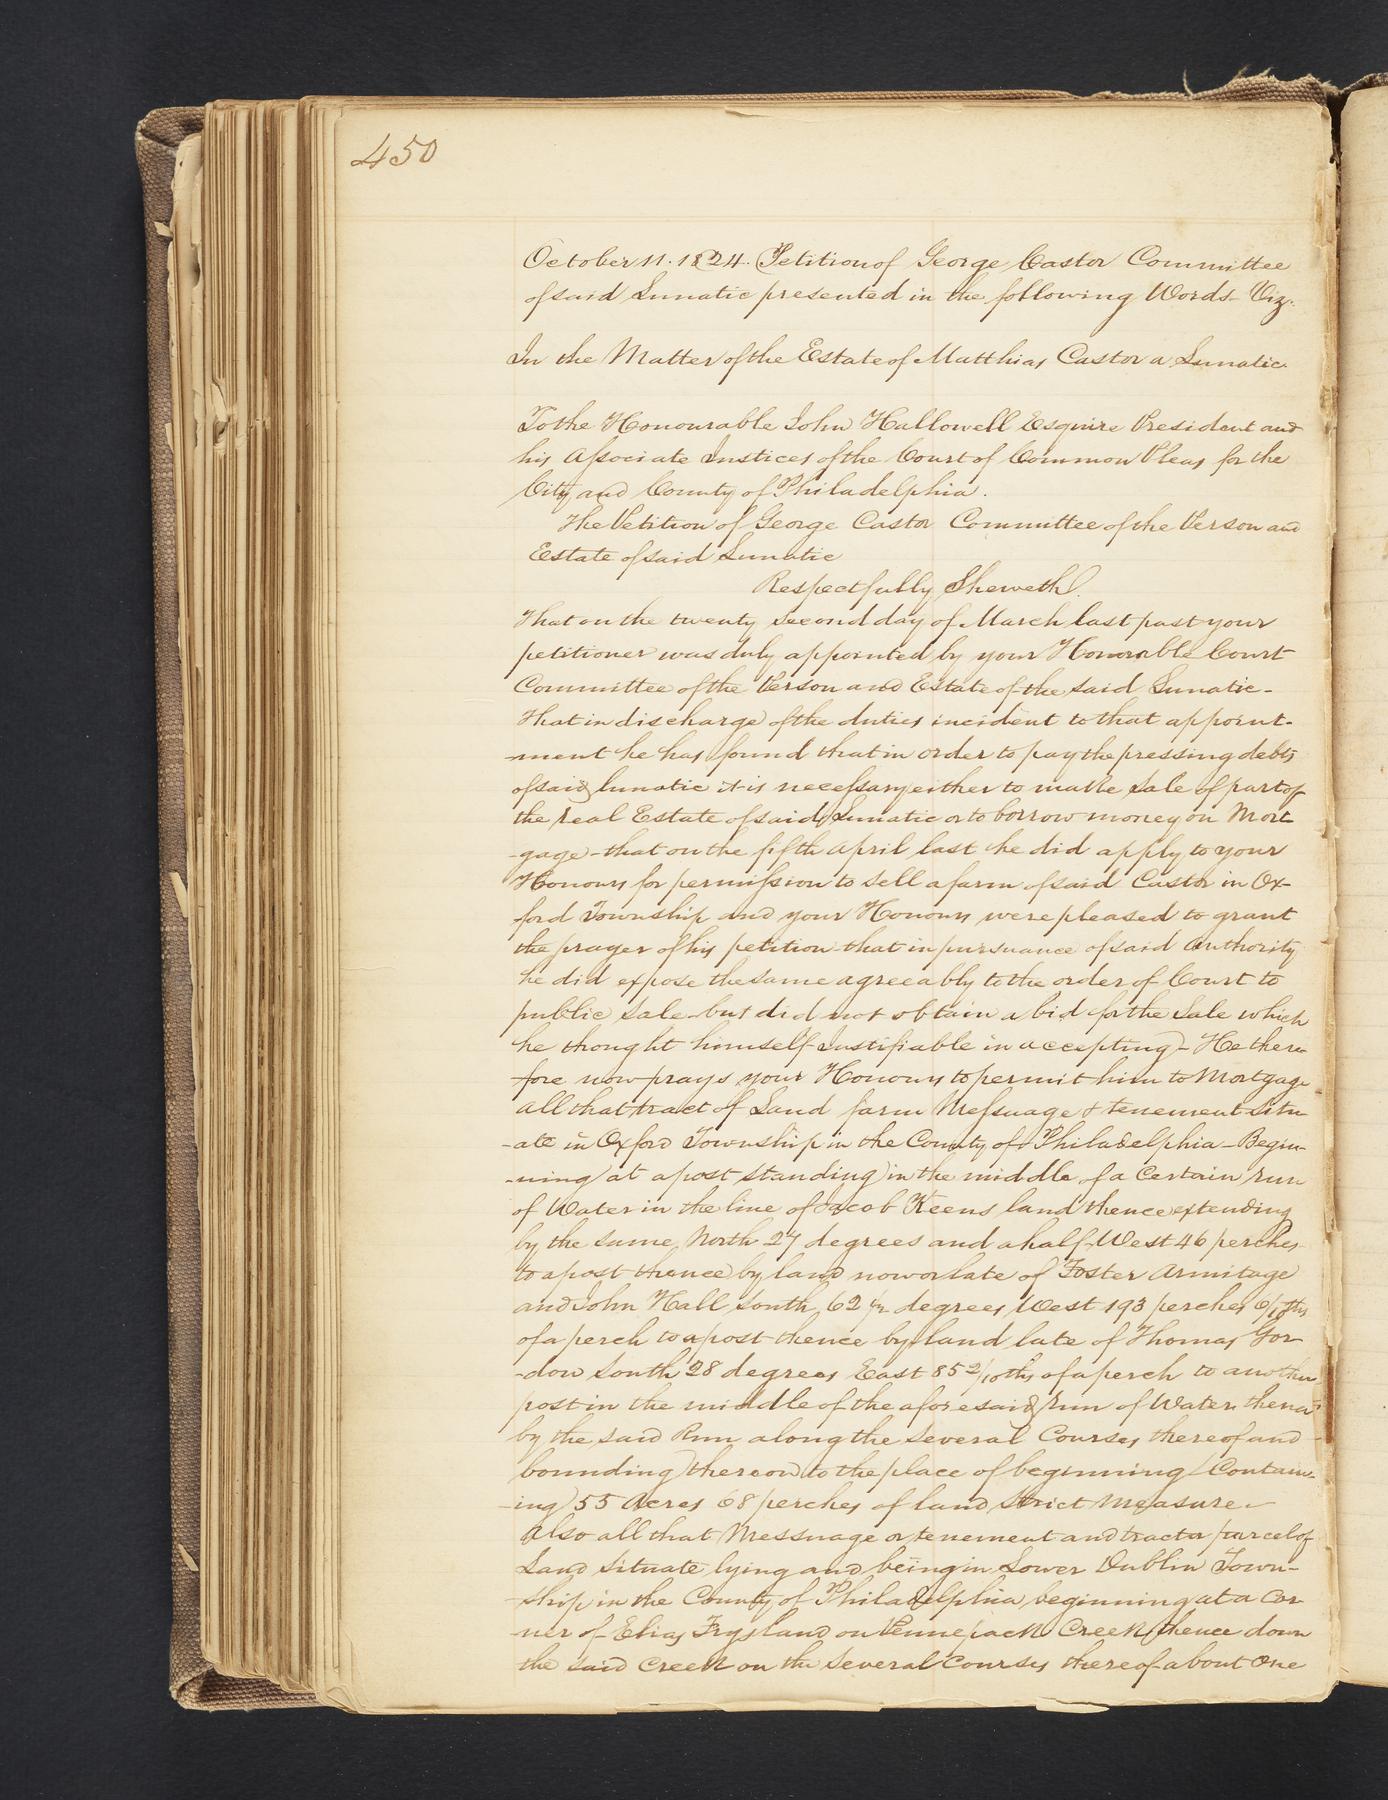 450
October 11. 1824. Petition of George Castor Committee
of said Lunatic presented in the following Words- Viz.
In the Matter of the Estate of Matthias Castor a Lunatic.
To the Honourable John Hallowell Esquire President and
his Associate Justices of the Court of Common Pleas for the
City and County of Philadelphia.
The Petition of George Castor Committee of the Person and
Estate of said Lunatic
Respectfully Sheweth.
That on the twenty second day of March last past your
petitioner was duly appointed by your Honorable Court
Committee of the Person and Estate of the said Lunatic-
That in discharge of the duties incident to that appoint-
-ment he has found that in order to pay the pressing debts
of said lunatic it is necessary either to make sale of part of
the real Estate of said Lunatic or to borrow money on Mort
-gage-that on the fifth April last he did apply to your
Honours for permission to sell a farm of said Castor in Ox-
ford Township and your Honours were pleased to grant
the prayer of his petition-that in pursuance of said authority
he did expose the same agreeably to the order of Court to
public sale-but did not obtain a bid for the Sale which
he thought himself Justifiable in accepting- He there-
fore now prays your Honours to permit him to Mortgage
all that tract of Land farm Messuage & tenement situ
-ate in Oxford Township in the County of Philadelphia-Begin-
-ning at a post standing in the middle of a Certain run
of Water in the line of Jacob Keens land thence extending
by the same North 27 degrees and a half West 46 perches
to a post thence by land now or late of Foster Armitage
and John Hall south 62 1/2 degrees West 193 perches 6/10ths
of a perch to a post thence by land late of Thomas Gor-
-don South 28 degrees East 85 2/10ths of a perch to another
post in the middle of the aforesaid run of Water thence
by the said Run along the Several Courses thereof and
bounding thereon to the place of beginning Contain-
-ing 55 Acres 68 perches of land Strict Measure-
Also all that Messuage or tenement and tract or parcel of
Land Situate lying and being in Lower Dublin Town-
ship in the County of Philadelphia beginning at a Cor
-ner of Elias Frys land on Pennepack Creek thence down
the said Creek on the Several Courses thereof about One